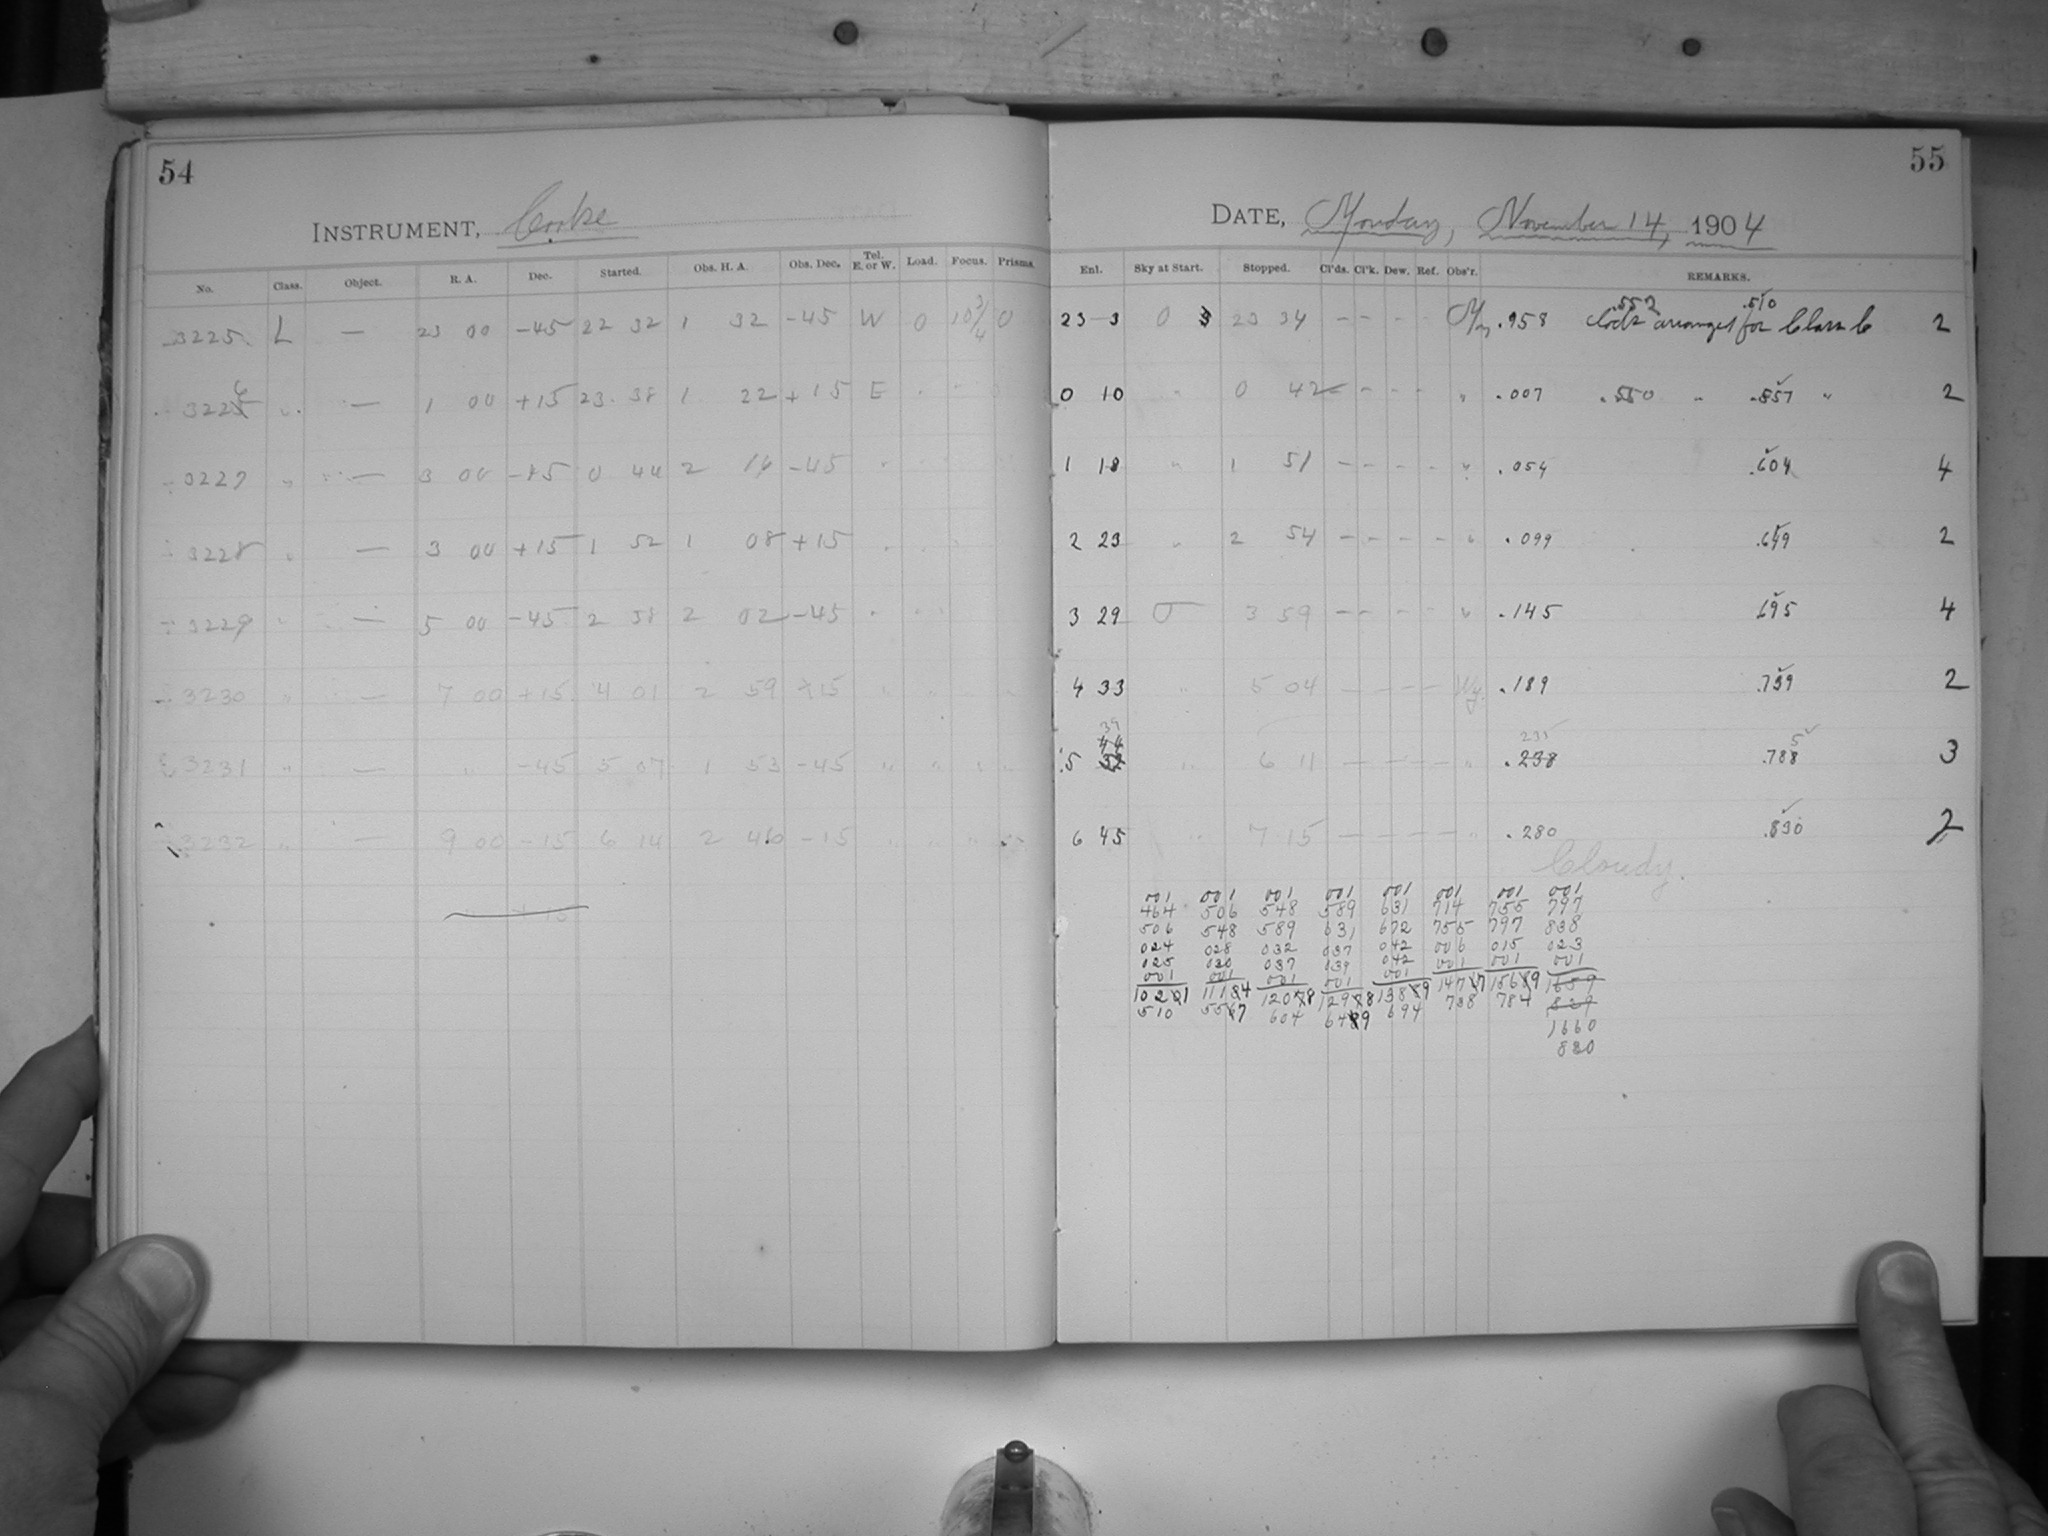 54
INSTRUMENT, Cooke
No. Class. Object. R. A. Dec. Started. Obs. H. A. Obs. Dec. Tel. E. or W. Load. Focus. Prisms.
3225 L — 23 00 -45 22 32 1 32 -45 W 0 10 3/4 0
3226 " — 1 00 +15 23 38 1 22 +15 E
3227 " — 3 00 -45 0 44 2 14 -45 "
3228 " — 3 00 +15 1 52 1 08 +15
3229 " — 5 00 -45 2 58 2 02 -45 "
3230 " — 7 00 +15 4 01 2 59 +15 " " "
3231 " — " -45 5 07 1 53 -45 " " " "
3232 " — 9 00 -15 6 14 2 46 -15 " " "
55
DATE, Monday, November 14, 1904
Enl. Sky at Start. Stopped. Cl'ds. Cl'k. Dew. Ref. Obs'r. REMARKS.
.552 .510
23 3 0 3 23 34 - - - - .958 clock arranged for Class C 2
0 10 " 0 42 - - - - " .007 .550 " .557 " 2
1 18 " 1 51 - - - - " .054 .604 4
2 23 " 2 54 - - - - " .099 .649 2
3 29 3 59 - - - - " .145 .695 4
4 33 " 5 04 - - - - Wy. .189 .739 2
39
44 235 5
5 32 " 6 11 - - - - " .238 .788 3
6 45 " 7 15 - - - - " .280 .830 2
Cloudy.
001 001 001 001 001 001 001 001
464 506 548 589 631 714 755 797
506 548 589 631 672 755 797 838
024 028 032 037 042 006 015 023
025 030 037 039 042 001 001 001
001 001 001 001 001
1021 1114 1208 1298 1389 1477 1569 1659
510 557 604 649 694 738 784 829
1660
830